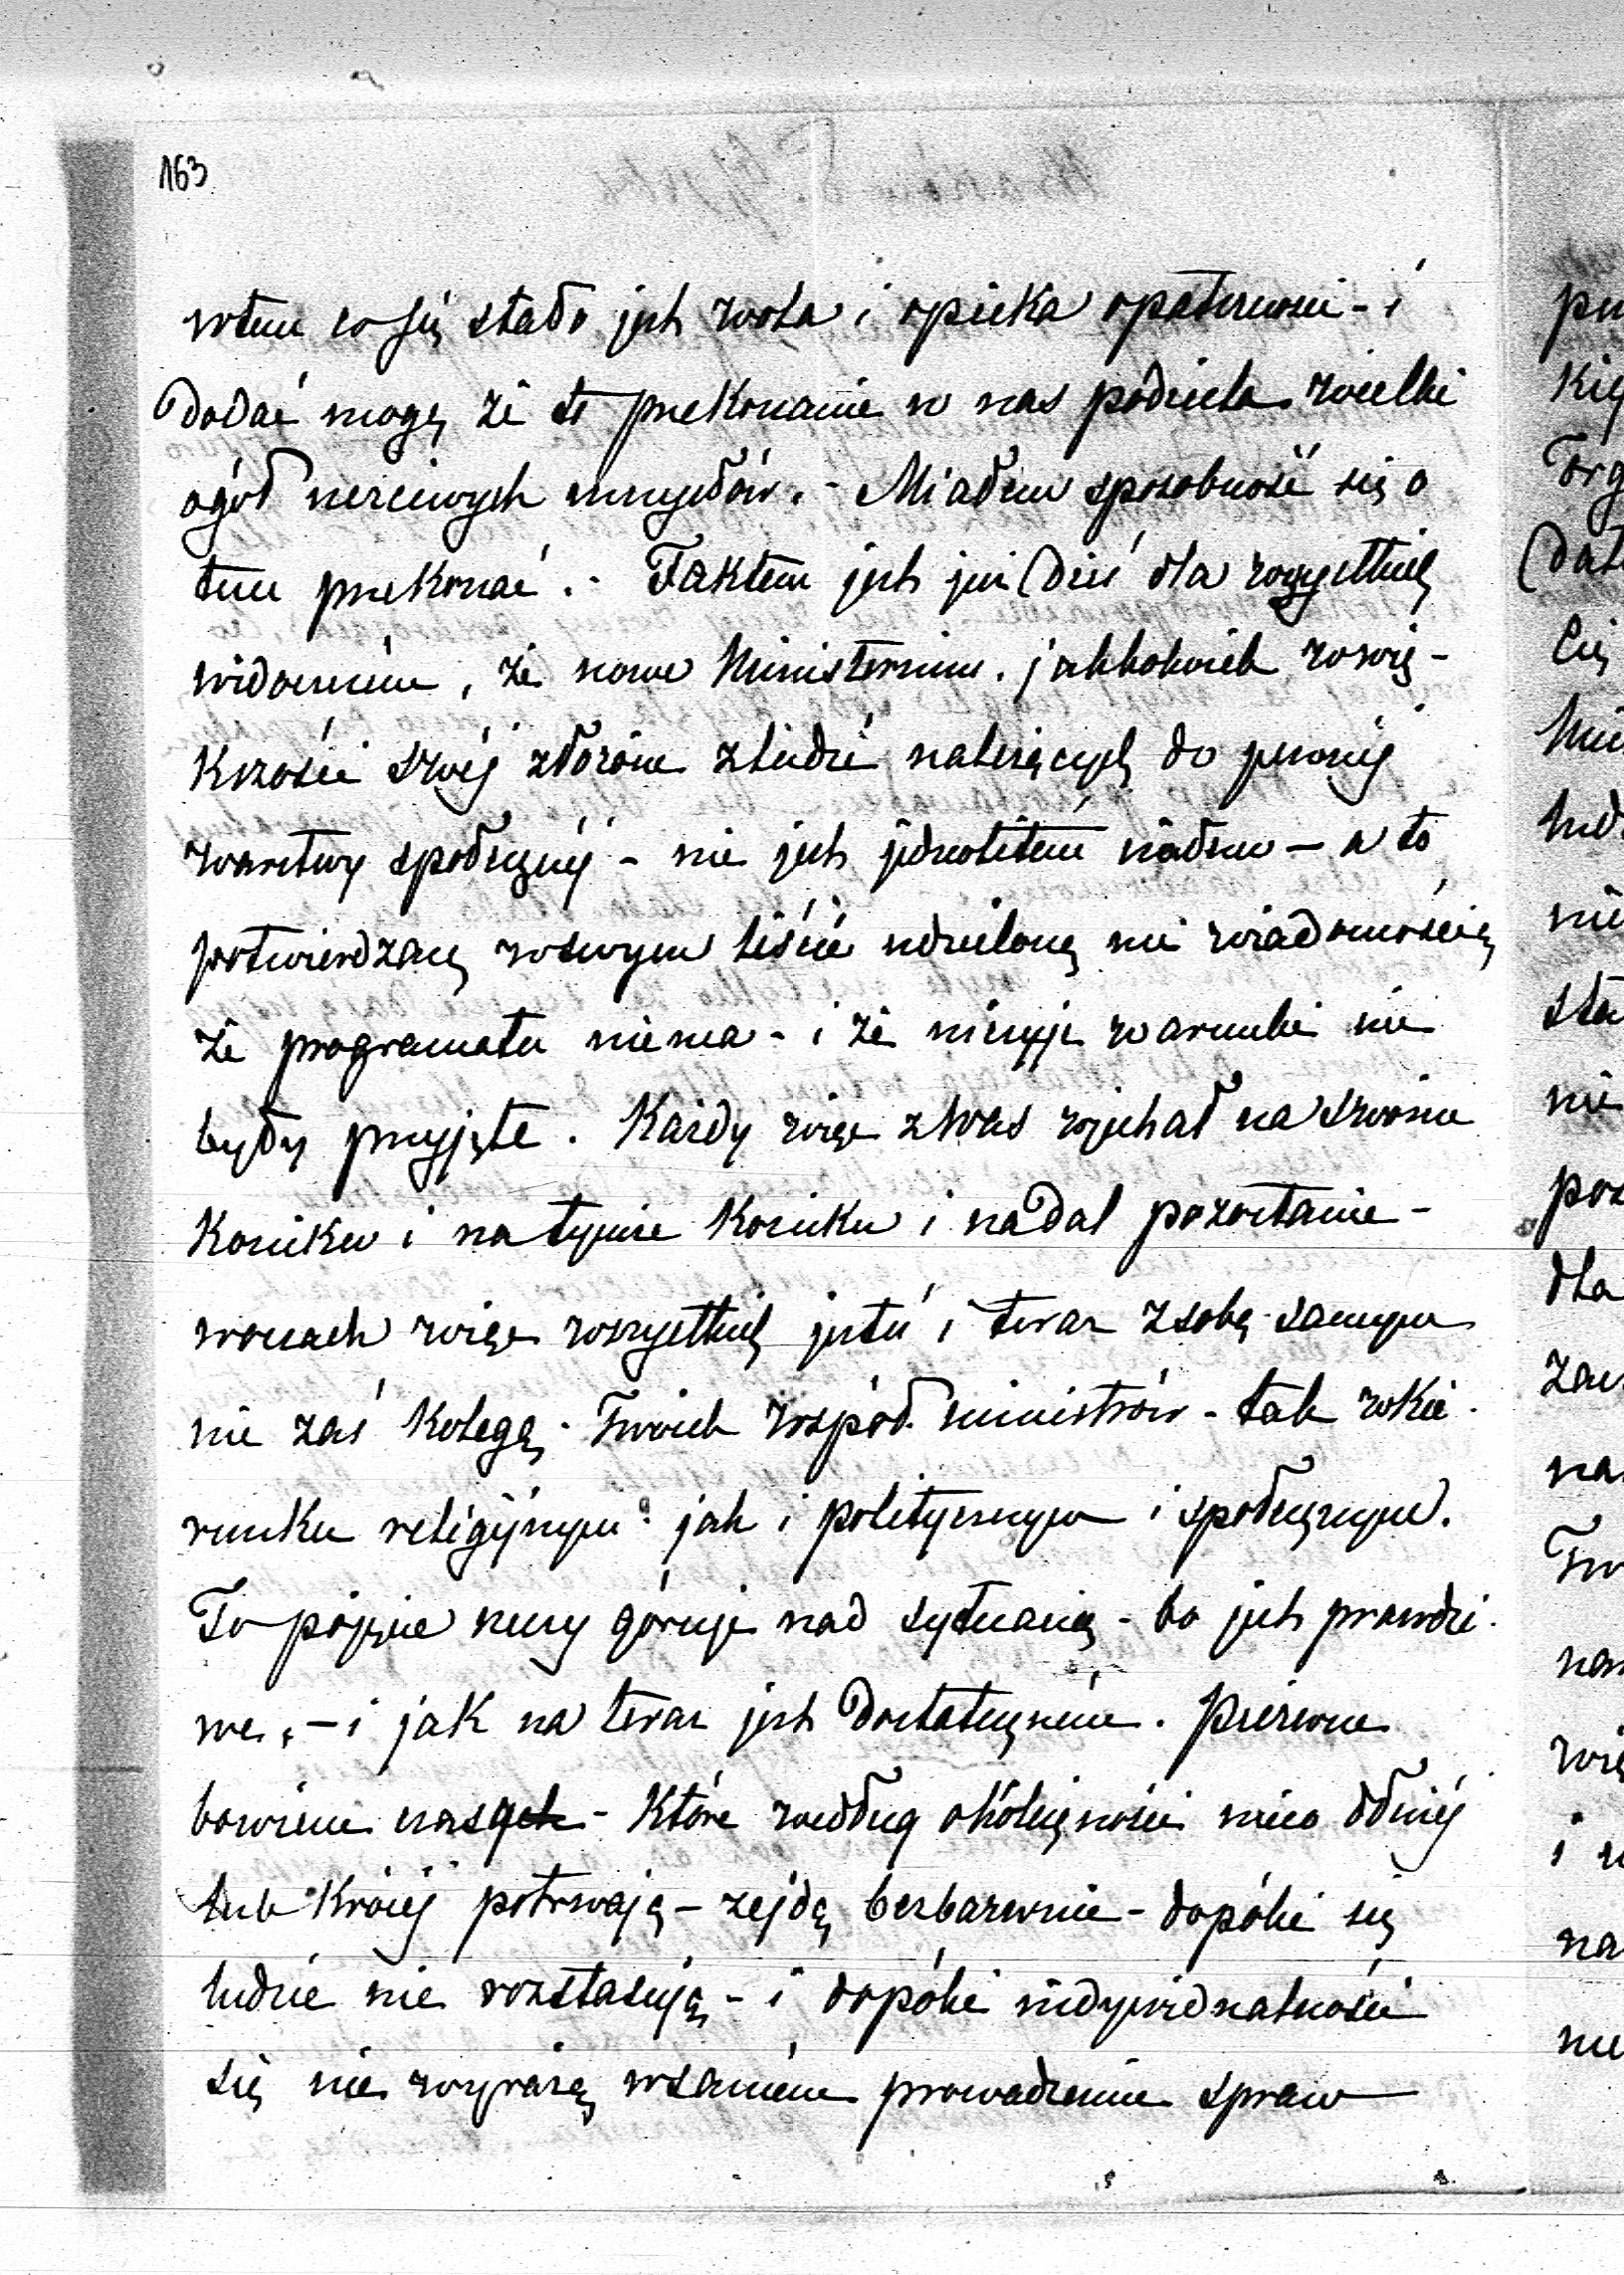 163
wtem co się stało jest wola i opieka opatrzności - i
Dodać mogę że to przekonanie w nas podziela wielki
ogół uczciwych umysłów. - Miałem sposobność się o
tem przekonać. - Faktem jest już Dziś dla wszystkich
widocznem, że nowe Ministerium. jakkolwiek wswię-
kszości swéj złożone zludzi należących do pewnéj
warstwy społecznéj - nie jest jednolitém ciałem - a to
potwierdzasz wswym liście udzieloną mi wiadomością
że programatu niema - i że niczyje warunki nie
były przyjęte. Każdy więc zWas wjechał na swoim
Koniku i na tymże Koniku i nadal pozostanie -
woczach więc wszystkich jesteś i teraz zsobą samym
nie zaś Kolegą Twoich współ ministrów - tak wkie-
runku religijnym jak i politycznym i społecznym.
To pojęcie rzeczy góruje nad sytuacią - bo jest prawdzi-
we, - i jak na teraz jest Dostateczném. Pierwsze
bowiem czasy - Które według okoliczności nieco dłużéj
lub Krócéj potrwają - zejdą bezbarwnie - dopóki się
ludzie nie rozstasują - i dopóki indywidualności
się nie wyrażą wsamém prowadzeniu spraw